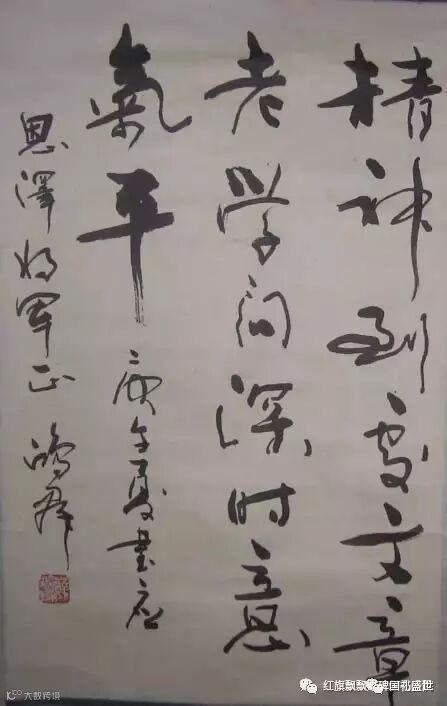 精神到处文章
老学问深时意
氣平
庚午夏书应
恩澤将军正 鸿群
大数跨境
红旗飘飘 国礼盛世